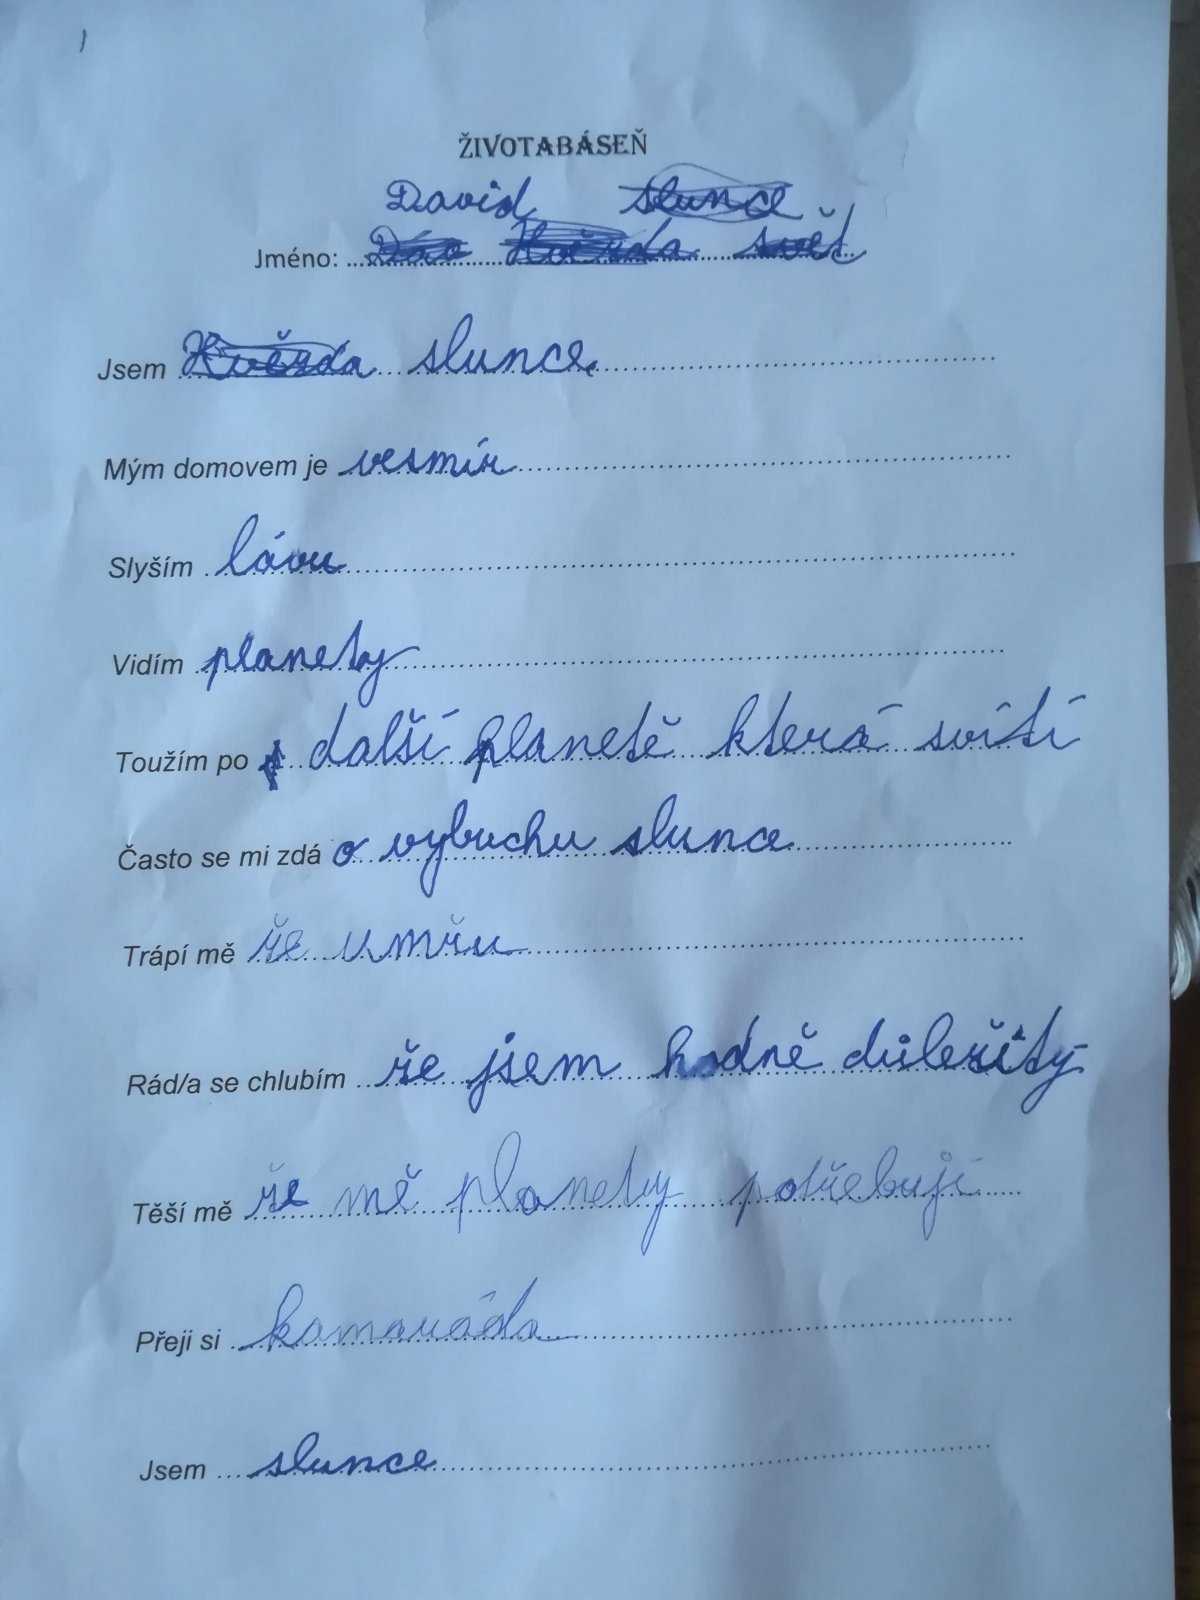 ŽIVOTABÁSEŇ
David slunce
Jméno: Dáv Hvězda svět
Jsem Hvězda slunce.
Mým domovem je vesmír
Slyším lávu
Vidím planety
Toužím po další planetě která svítí
Často se mi zdá o vybuchu slunce
Trápí mě že umřu
Rád/a se chlubím že jsem hodně důležitý
Těší mě že mě planety potřebují
Přeji si kamaráda
Jsem slunce